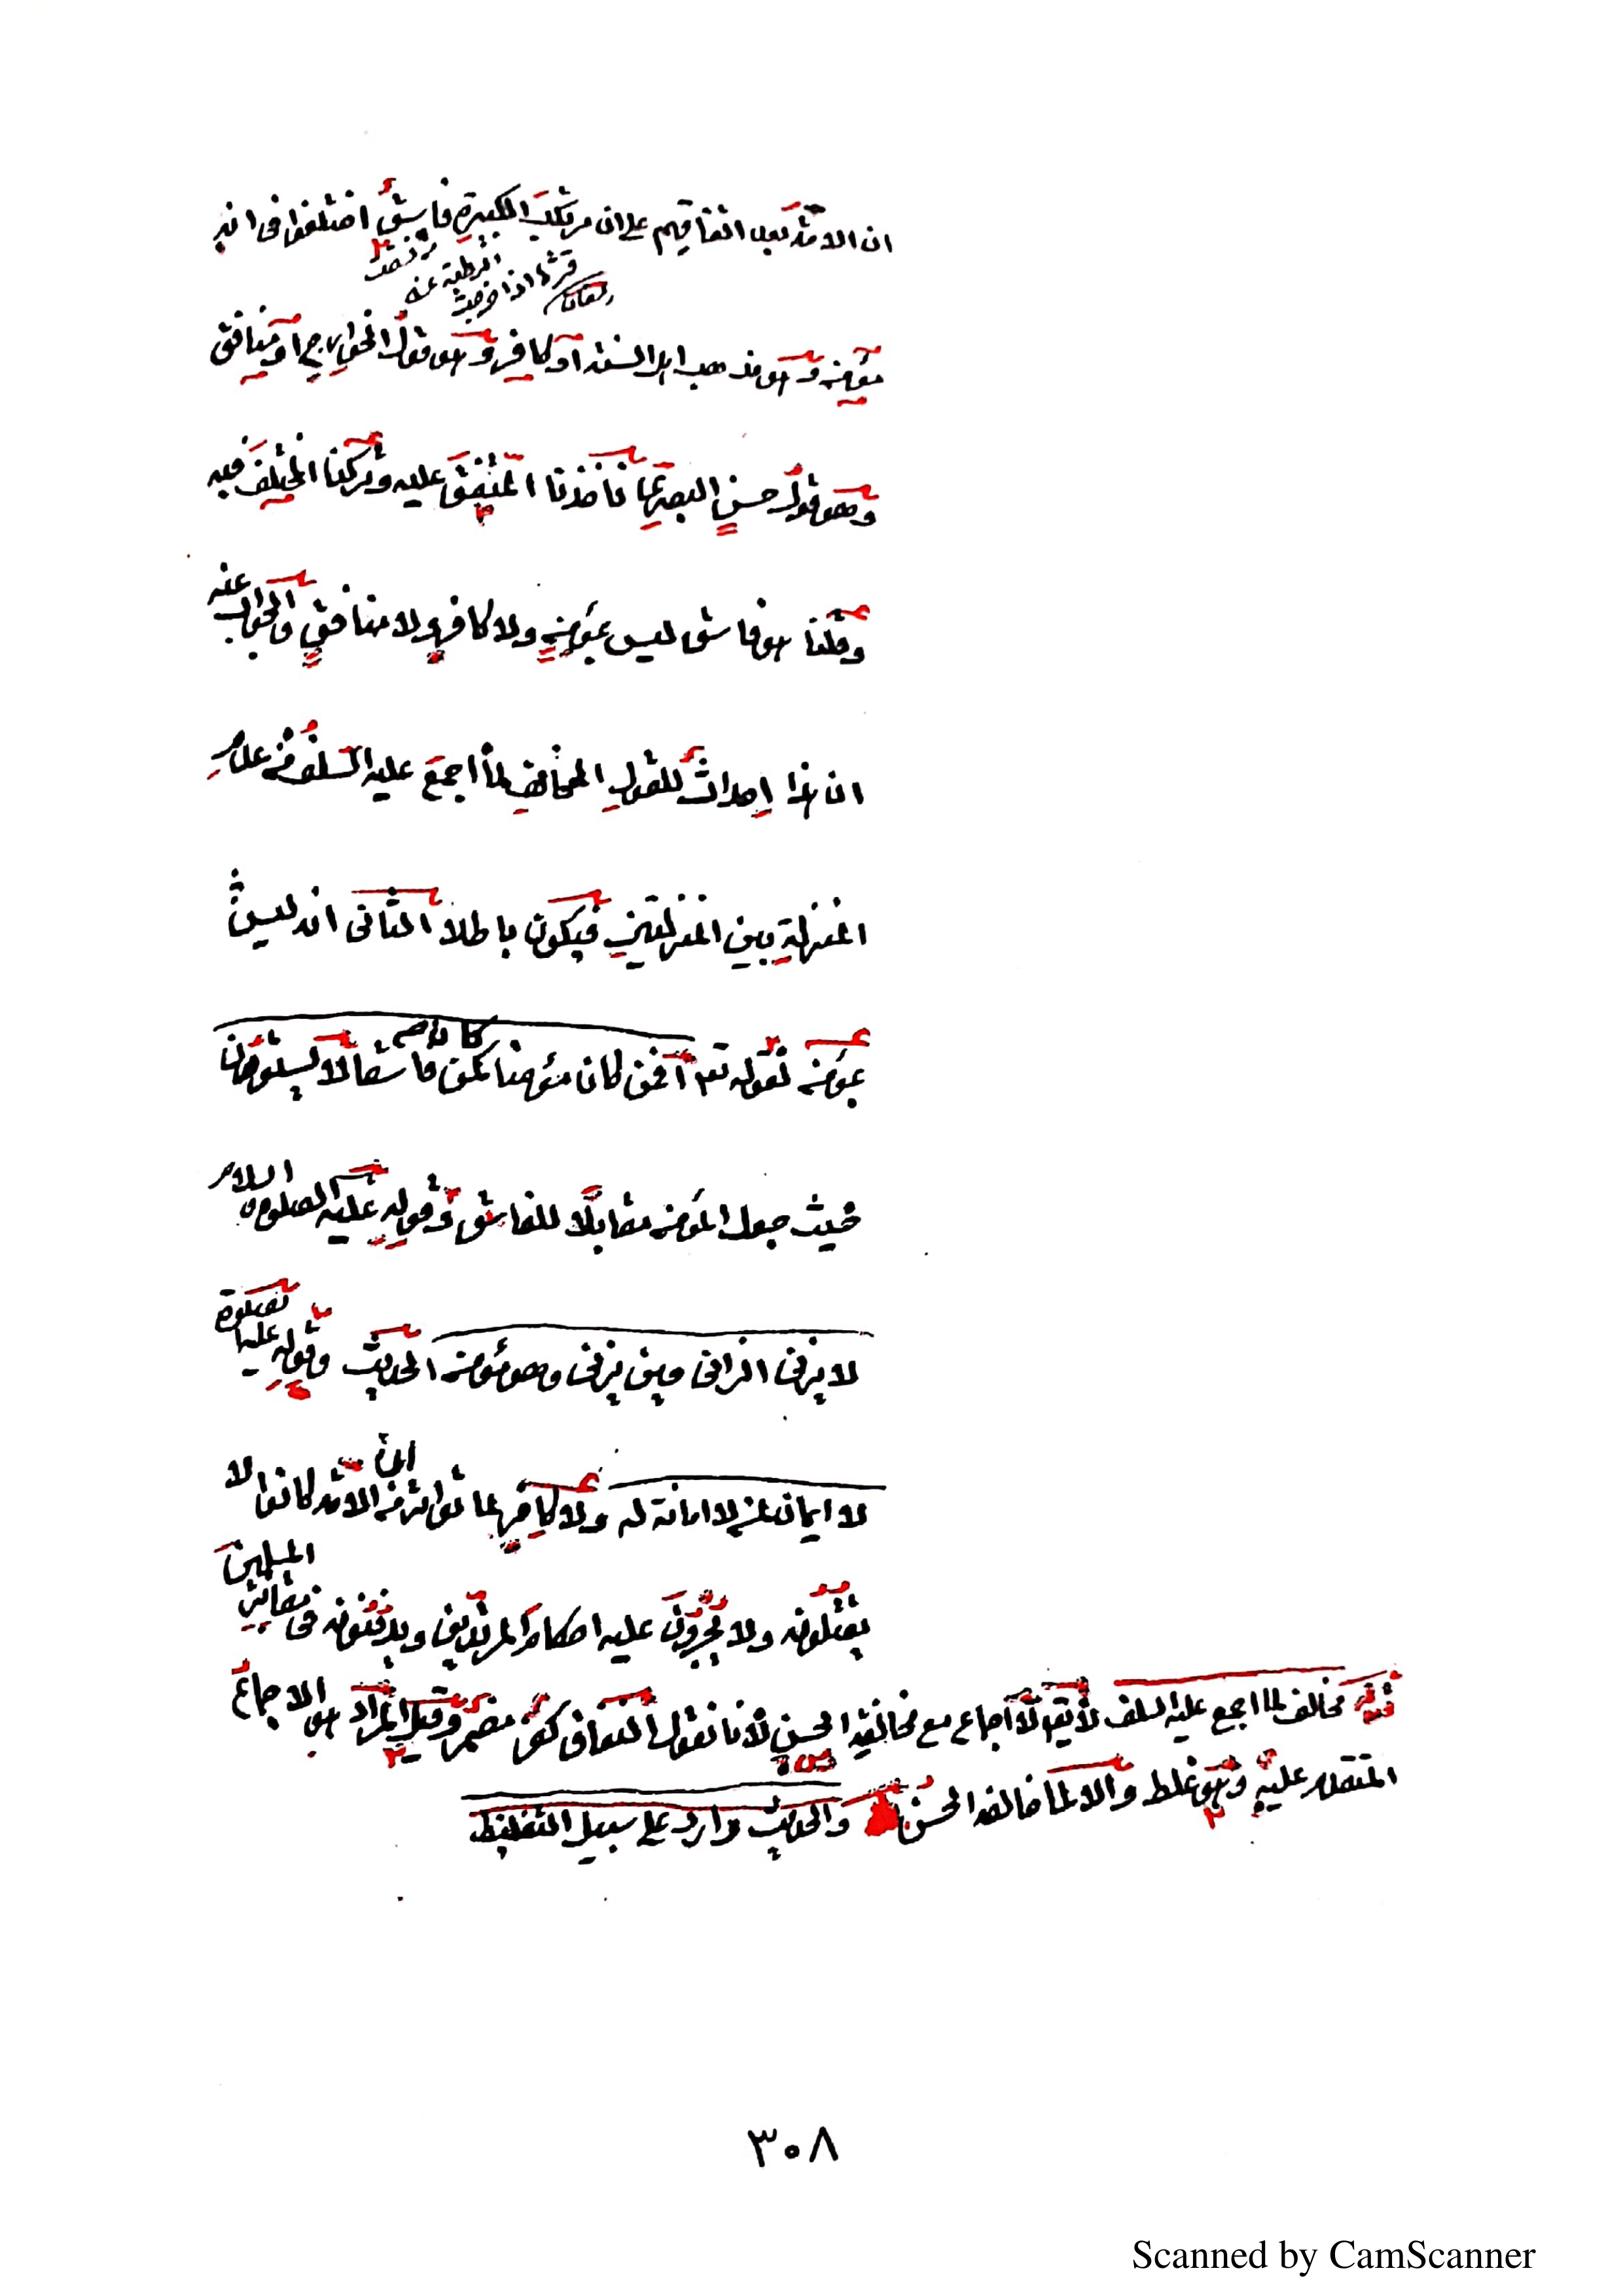 ان الامة بعد اتفاقهم على ان مرتكب الكبيرة فاسق اختلفوا فى انه
مؤمن وهو مذهب اهل السنة او كافر وهو قول الخوارج او منافق
وهو قول حسن البصرى فاخذنا المتفق عليه وتركنا المختلف فيه
وقلنا هو فاسق ليس بمؤمن ولا كافر ولا منافق والجواب عنه
ان هذا احداث للقول المخالف لما اجمع عليه السلف من عدم
المنزلة بين المنزلتين فيكون باطلا الثانى انه ليس
بمؤمن لقوله تع افمن كان مؤمنا كمن كان فاسقا لا يستوون
حيث جعل المؤمن مقابلا للفاسق وقوله عليه الصلوة والسلام
لا يزنى الزانى حين يزنى وهو مؤمن الحديث وقوله عليه الصلوة
لا ايمان لمن لا امانة له ولا كافر لما تواتر من ان الامة كانوا لا
يقتلونه ولا يجرون عليه احكام المرتدين ويدفنونه فى مقابر المسلمين
مخالف لما اجمع عليه السلف لا يقال لا اجماع مع مخالفة الحسن لانا نقول النفاق كفر مضمر وقيل المراد هو الاجماع
المتقدم عليه وهو غلط والا لما خالفه الحسن والحديث وارد على سبيل التغليظ
٣٠٨
Scanned by CamScanner